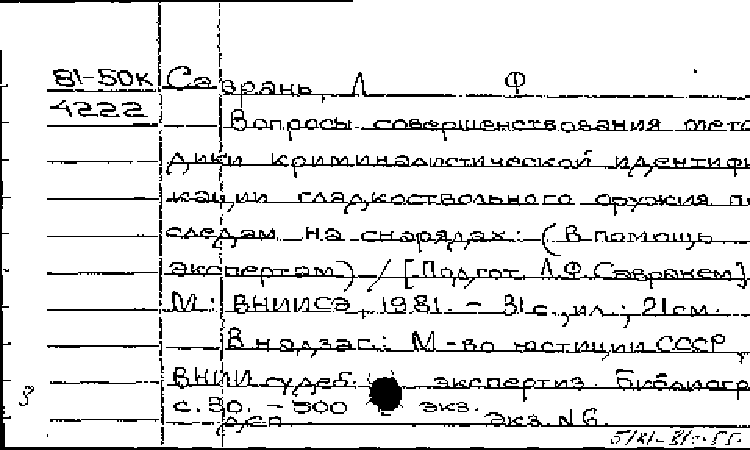 81-50к Саврань, Л Ф
4222
Вопросы совершенствования мето
дики криминалистической идентифи
кации гладкоствольного оружия по
следам на снарядах: (В помощь
экспертам) / [Подгот. Л.Ф. Савранем]
М.: ВНИИСЭ, 1981. - 31 с., ил.; 21 см.
В надзаг.: М-во юстиции СССР,
ВНИИ судеб. экспертиз. Библиогр
с. 30. - 500 экз.
Экз. N 6.
3